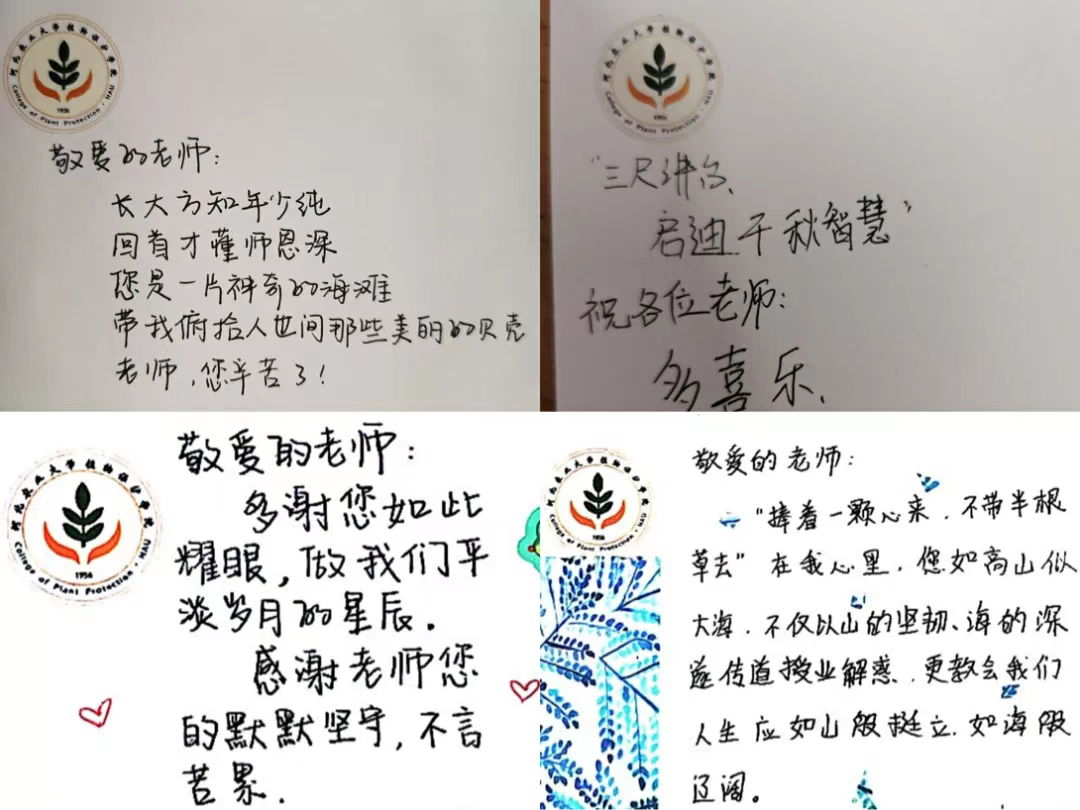 河南农业大学植物保护学院
College of Plant Protection · HAU
1956
敬爱的老师:
长大方知年少纯
回首才懂师恩深
您是一片神奇的海滩
带我俯拾人世间那些美丽的贝壳
老师,您辛苦了!
河南农业大学植物保护学院
College of Plant Protection · HAU
1956
“三尺讲台、
启迪千秋智慧”
祝各位老师:
多喜乐、
河南农业大学植物保护学院
College of Plant Protection · HAU
1956
敬爱的老师:
多谢您如此
耀眼,做我们平
淡岁月的星辰.
感谢老师您
的默默坚守,不言
苦累.
河南农业大学植物保护学院
College of Plant Protection · HAU
1956
敬爱的老师:
“捧着一颗心来,不带半根
草去”在我心里,您如高山似
大海,不仅以山的坚韧、海的深
邃传道授业解惑,更教会我们
人生应如山般挺立,如海般
辽阔。